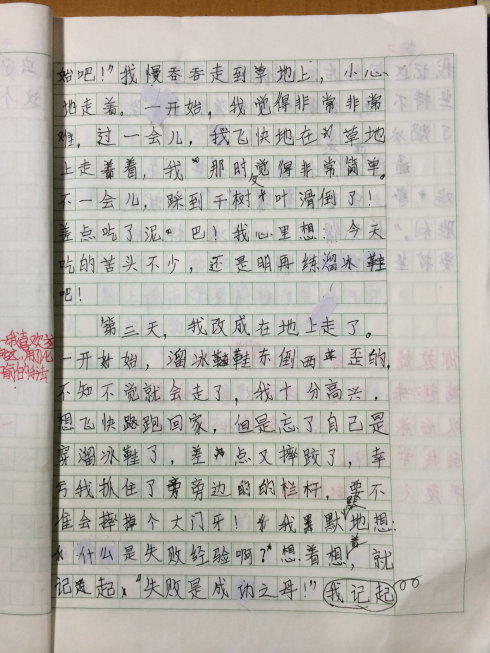 始吧!"我慢吞吞走到草地上,小心
地走着。一开始,我觉得非常非常
难,过一会儿,我飞快地在草地
上走着着,我那时觉得非常简单。
不一会儿,踩到干树叶滑倒了!
差点吃了泥巴!我心里想:今天
吃的苦头不少,还是明再练溜冰鞋
吧!
第二天,我改成在地上走了。
一开始,溜冰鞋鞋东倒西歪的,
不知不觉就会走了,我十分高兴,
想飞快跑回家,但是忘了自己是
穿溜冰鞋了,差点又摔跤了,幸
亏我抓住了旁边的的栏杆,要不
准会摔个大门牙!我默默地想:
什么是失败经验啊?想着想着,就
记起"失败是成功之母!"我记起